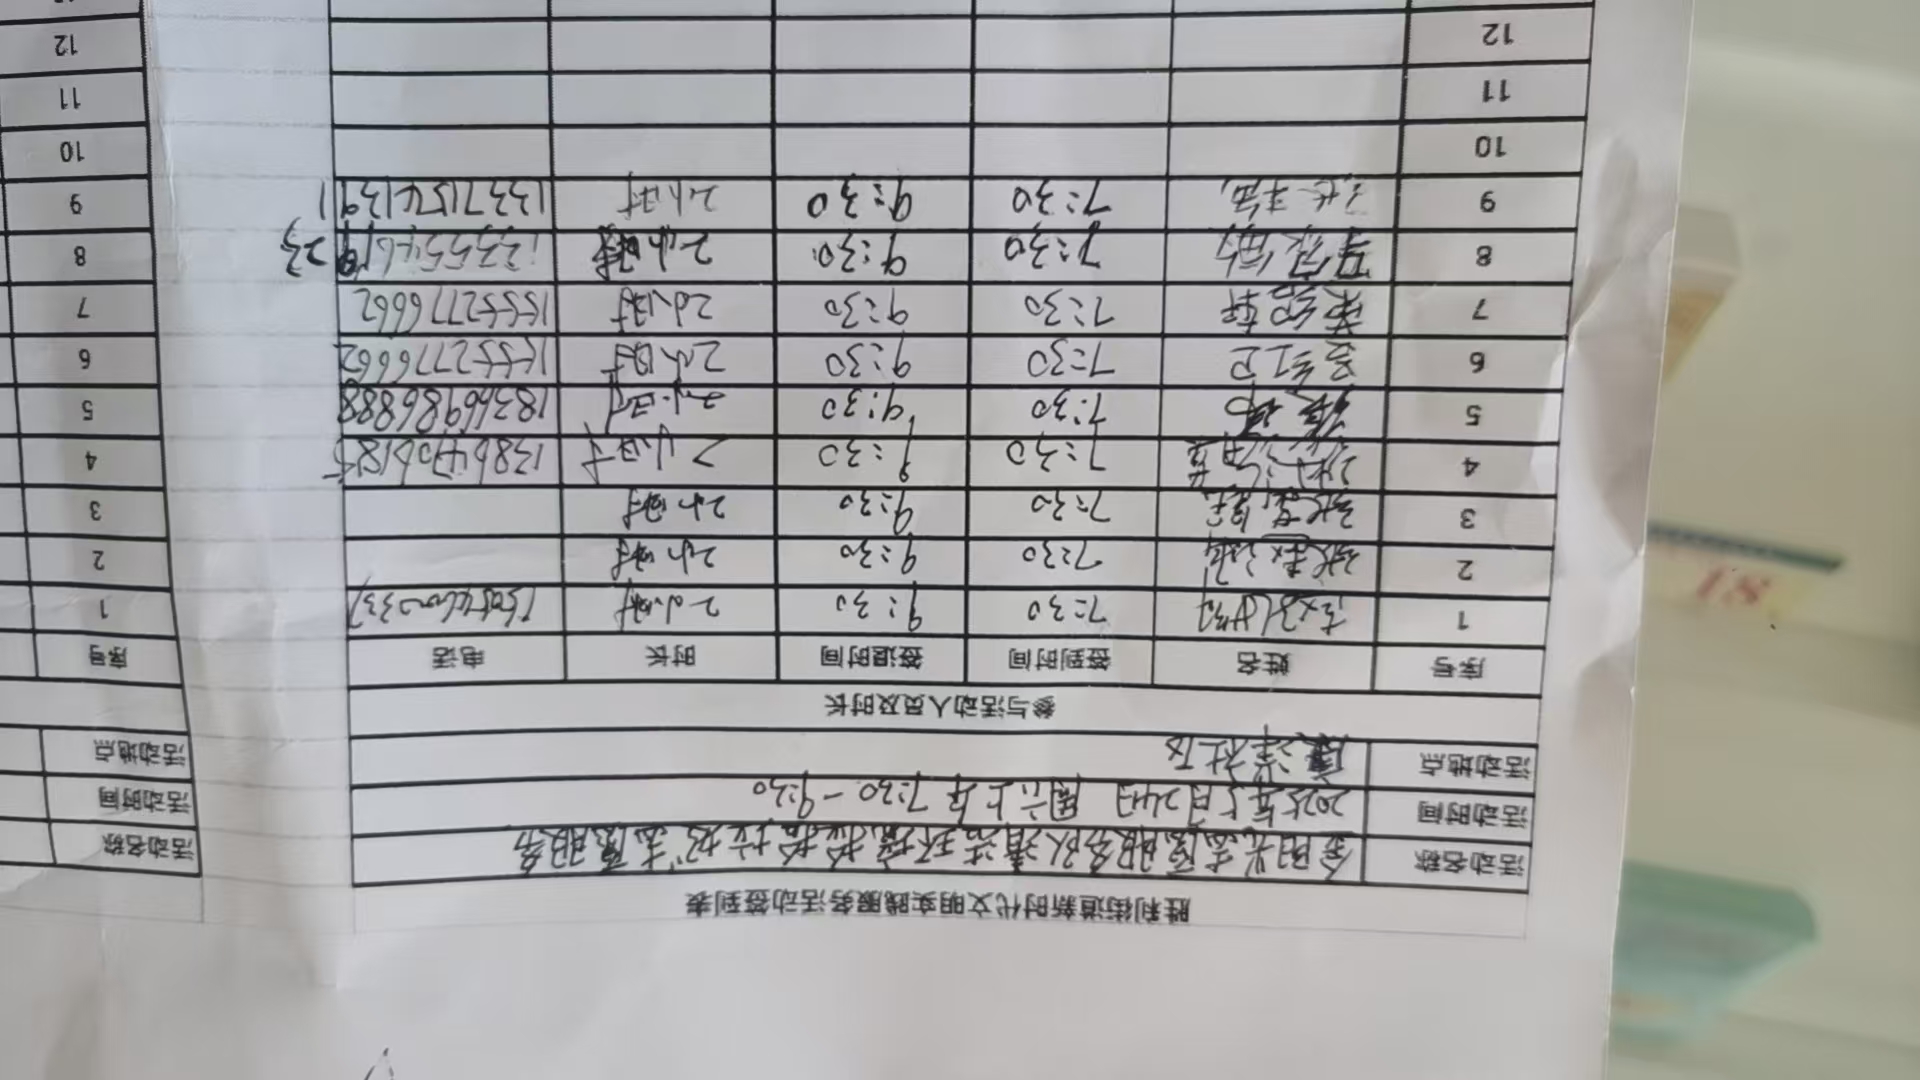 胜利街道新时代文明实践服务活动签到表
活动名称 金阳光志愿服务队清洁环境捡拾垃圾志愿服务
活动时间 2025年5月24日 周六上午 7:30-9:30
活动地点 康洋社区
参与活动人员及时长
序号 姓名 签到时间 签退时间 时长 电话
1 7:30 9:30 2小时
2 7:30 9:30 2小时
3 7:30 9:30 2小时
4 7:30 9:30 2小时 13864706185
5 7:30 9:30 2小时 18366986888
6 7:30 9:30 2小时 15552776662
7 7:30 9:30 2小时 15552776662
8 7:30 9:30 2小时
9 7:30 9:30 2小时 13371541391
10
11
12
活动名称
活动时间
活动地点
序号
1
2
3
4
5
6
7
8
9
10
11
12
18